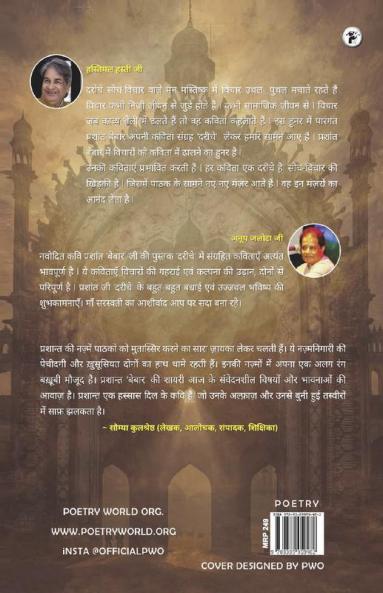 हस्तिमल हस्ती जी
दरीचे सोच विचार वाले मन मस्तिष्क में विचार उथल पुथल मचाते रहते हैं
विचार कभी निजी जीवन से जुड़े होते हैं । कभी सामाजिक जीवन से । विचार
जब काव्य शैली में ढलते हैं तो वह कविता कहलाते हैं । इस हुनर में पारंगत
प्रशांत बेबार अपनी कविता संग्रह 'दरीचे' लेकर हमारे सामने आए हैं । प्रशांत
बेबार में विचारों को कविता में ढालने का हुनर है ।
उनकी कविताएँ प्रभावित करती हैं । हर कविता एक दरीचे है सोच-विचार की
खिड़की है । जिसमें पाठक के सामने नए नए मंज़र आते हैं । वह इन मंज़रों का
आनंद लेता है ।
अनूप जलोटा जी
नवोदित कवि प्रशांत 'बेबार' जी की पुस्तक 'दरीचे' में संग्रहित कविताएँ अत्यंत
भावपूर्ण है । ये कविताएँ विचारों की गहराई एवं कल्पना की उड़ान, दोनों से
परिपूर्ण है । प्रशांत जी 'दरीचे' के बहुत बहुत बधाई एवं उज्जवल भविष्य की
शुभकामनाएँ। माँ सरस्वती का आशीर्वाद आप पर सदा बना रहे।
प्रशान्त की नज़्में पाठकों को मुतास्सिर करने का सारा ज़ायका लेकर चलती हैं। ये नज़्मनिगारी की
पेचीदगी और ख़ुसूसियत दोनों का हाथ थामे रहती हैं। इनकी नज़्मों में अपना एक अलग रंग
बख़ूबी मौजूद है। प्रशान्त 'बेबार' की शायरी आज के संवेदनशील विषयों और भावनाओं की
आवाज़ है। प्रशान्त एक हस्सास दिल के कवि हैं जो उनके अल्फ़ाज़ और उनसे बुनी हुई तस्वीरों
में साफ़ झलकता है।
~ सौम्या कुलश्रेष्ठ (लेखक, आलोचक, संपादक, शिक्षिका)
POETRY
POETRY WORLD ORG.
WWW.POETRYWORLD.ORG
iNSTA @OFFICIALPWO
MRP 249
COVER DESIGNED BY PWO